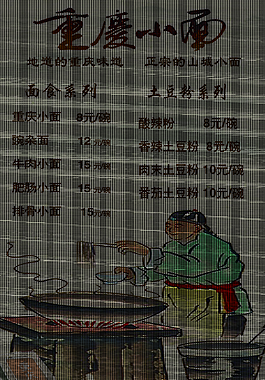 重慶小面
地道的重庆味道 正宗的山城小面
面食系列 土豆粉系列
重庆小面 8元/碗 酸辣粉 8元/碗
豌杂面 12元/碗 香辣土豆粉 8元/碗
牛肉小面 15元/碗 肉末土豆粉 10元/碗
肥肠小面 15元/碗 番茄土豆粉 10元/碗
排骨小面 15元/碗